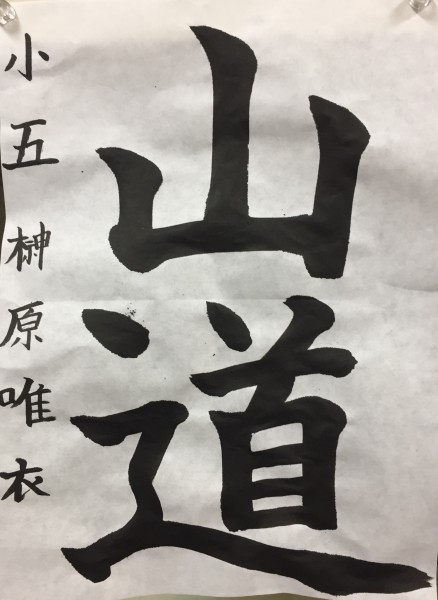 山道
小五 榊原唯衣